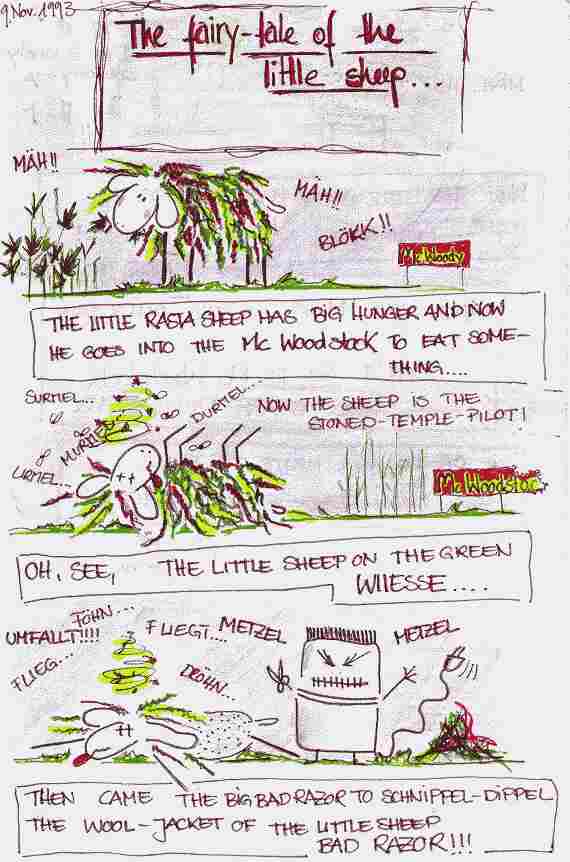 9. Nov. 1993
The fairy-tale of the
little sheep...
MÄH!!
MÄH!!
BLÖKK!!
Mc Woody
THE LITTLE RASTA SHEEP HAS BIG HUNGER AND NOW
HE GOES INTO THE Mc Woodstock TO EAT SOME-
THING....
SURMEL...
MURMEL
DURMEL...
URMEL...
NOW THE SHEEP IS THE
STONED-TEMPLE-PILOT!
Mc Woodstoc
OH, SEE, THE LITTLE SHEEP ON THE GREEN
WIIESSE....
FÖHN...
UMFALLT!!!!
FLIEGT....
METZEL
METZEL
FLIEG...
DRÖHN...
THEN CAME THE BIG BAD RAZOR TO SCHNIPPEL-DIPPEL
THE WOOL-JACKET OF THE LITTLE SHEEP
BAD RAZOR!!!